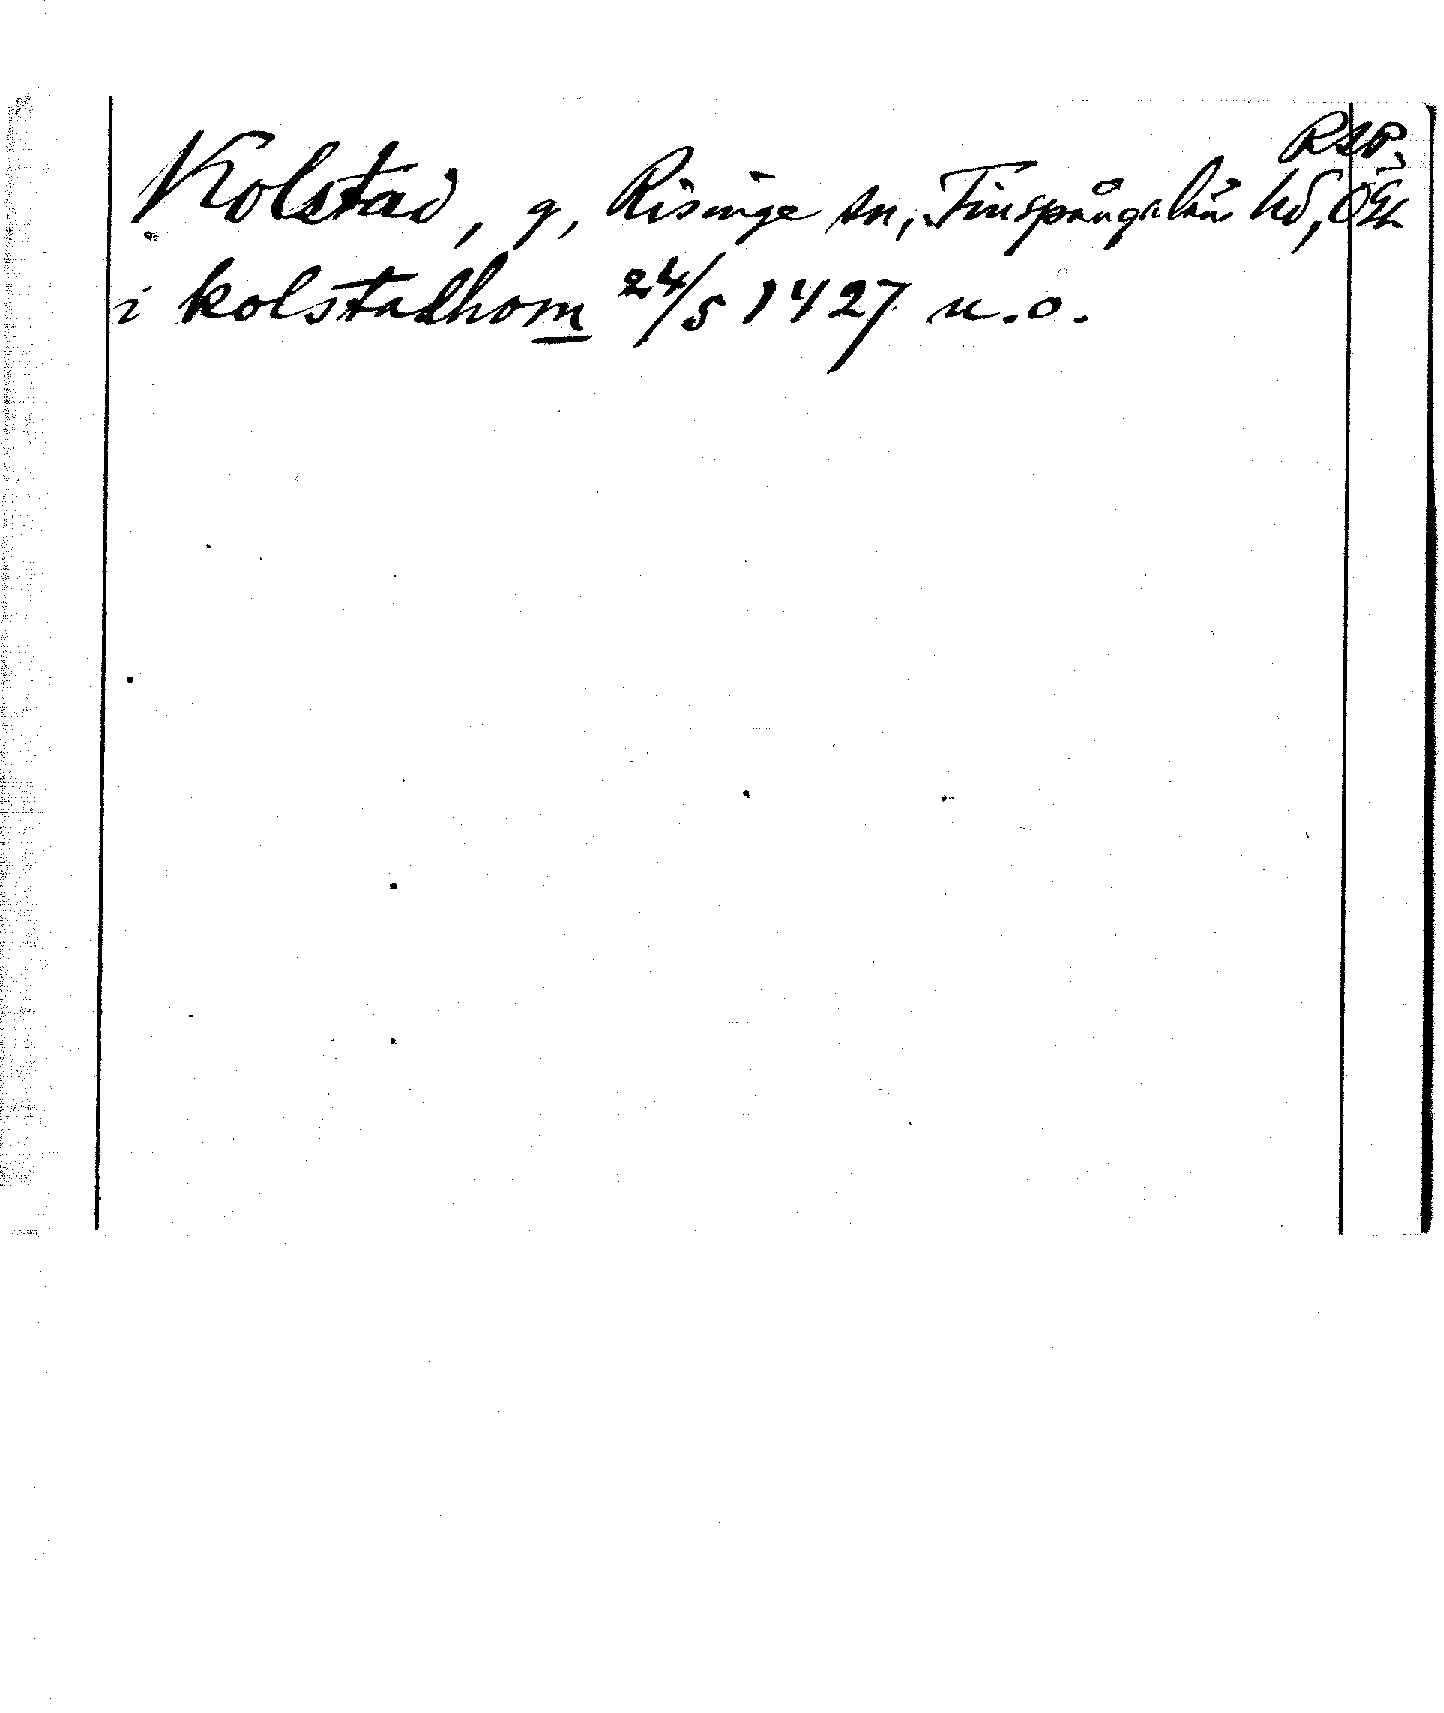 RAP.
Kolstad, g, Risinge sn, Finspångalän hd, Ög
i kolstadhom 24/5 1427 u.o.